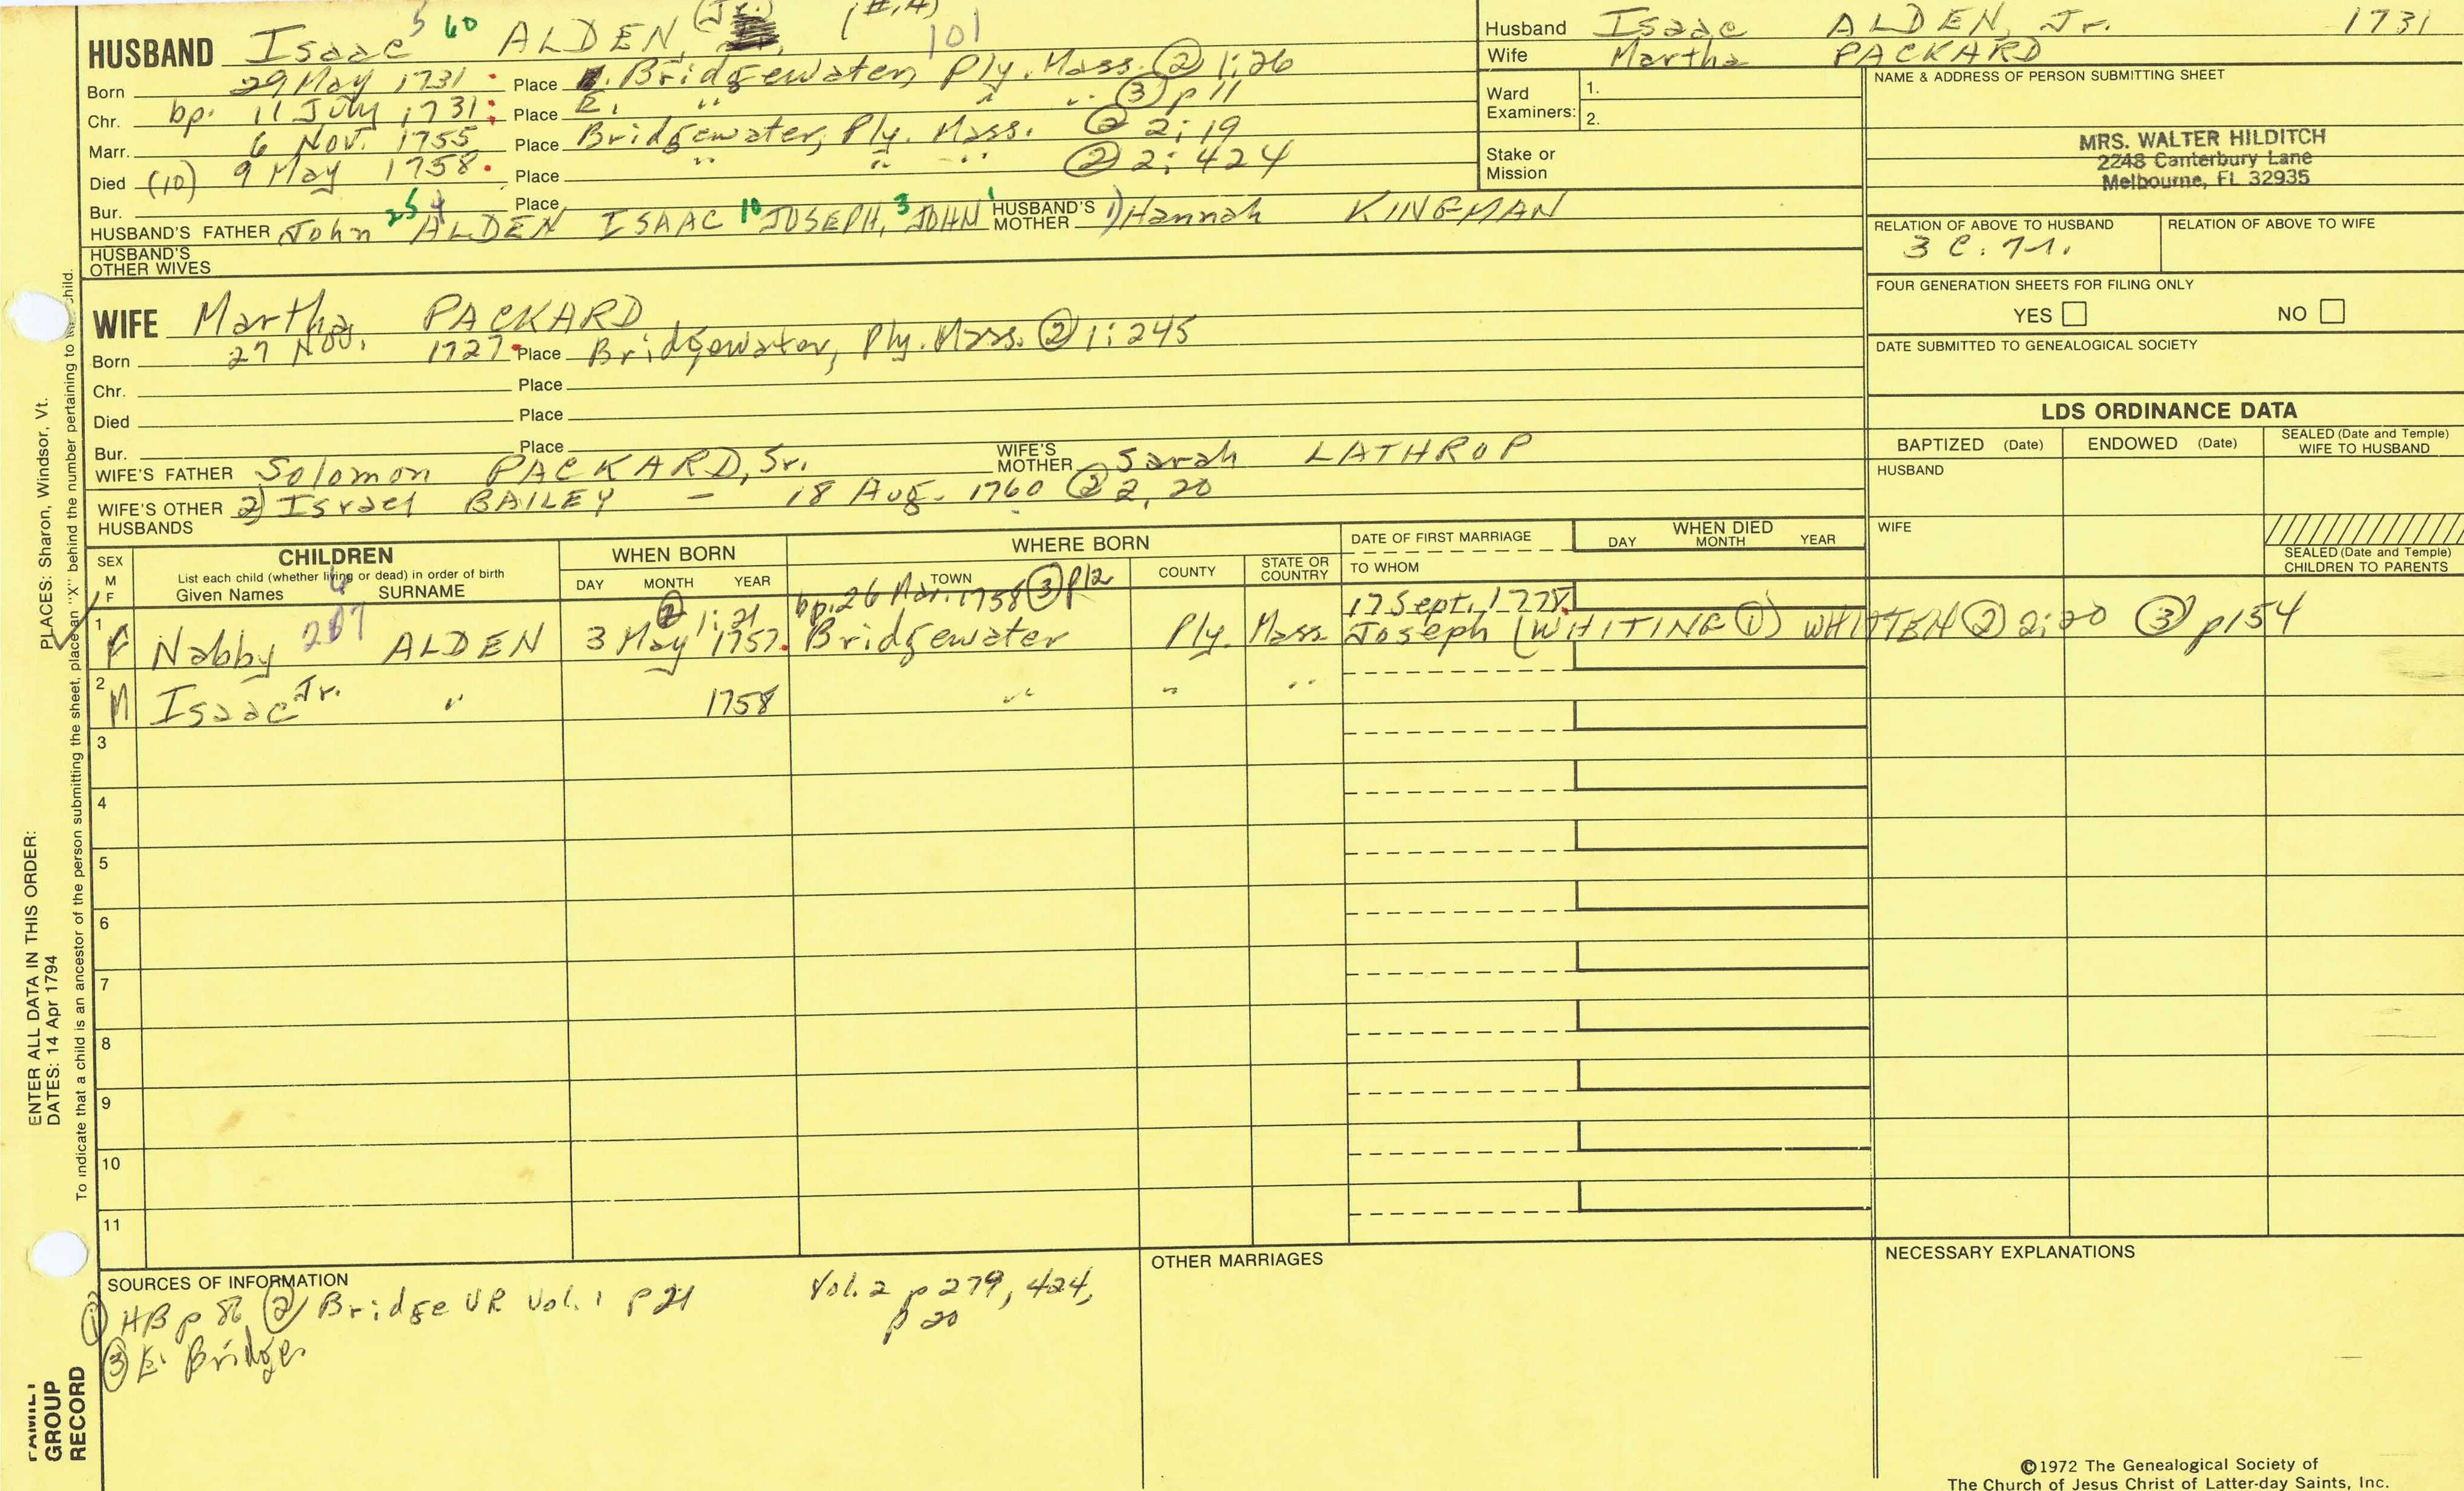 HUSBAND Isaac 5 60 ALDEN, (Jr.) 101
Born 29 May 1731 : Place Bridgewater, Ply. Mass. ② 1:26
Chr. bp. 11 July 1731 : Place E. " " " ③ p 11
Marr. 6 Nov. 1755 Place Bridgewater, Ply. Mass. ② 2:19
Died (10) 9 May 1758. Place " " " ② 2:424
Bur. Place
HUSBAND'S FATHER John 25 4 ALDEN ISAAC 10 JOSEPH, 3 JOHN 1 HUSBAND'S MOTHER 1) Hannah KINGMAN
HUSBAND'S OTHER WIVES
WIFE Martha PACKARD
Born 27 Nov. 1727. Place Bridgewater, Ply. Mass. ② 1:245
Chr. Place
Died Place
Bur. Place
WIFE'S FATHER Solomon PACKARD, Sr. WIFE'S MOTHER Sarah LATHROP
WIFE'S OTHER HUSBANDS 2) Israel BAILEY – 18 Aug. 1760 ② 2, 20
Husband Isaac ALDEN, Jr. 1731
Wife Martha PACKARD
Ward Examiners: 1.
2.
Stake or Mission
NAME & ADDRESS OF PERSON SUBMITTING SHEET
MRS. WALTER HILDITCH
2248 Canterbury Lane
Melbourne, FL 32935
RELATION OF ABOVE TO HUSBAND RELATION OF ABOVE TO WIFE
3 C. 7r.
FOUR GENERATION SHEETS FOR FILING ONLY
YES NO
DATE SUBMITTED TO GENEALOGICAL SOCIETY
LDS ORDINANCE DATA
BAPTIZED (Date) ENDOWED (Date) SEALED (Date and Temple) WIFE TO HUSBAND
HUSBAND
WIFE
SEALED (Date and Temple) CHILDREN TO PARENTS
SEX M F CHILDREN List each child (whether living or dead) in order of birth Given Names SURNAME 6
WHEN BORN DAY MONTH YEAR
WHERE BORN TOWN COUNTY STATE OR COUNTRY
DATE OF FIRST MARRIAGE TO WHOM
WHEN DIED DAY MONTH YEAR
② 1:21 bp. 26 Mar. 1758 ③ p12 17 Sept. 1778.
1 F Nabby 207 ALDEN 3 May 1757. Bridgewater Ply. Mass. Joseph (WHITING ①) WHITTEN ② 2:20 ③ p154
2 M Isaac Jr. " 1758 " " "
3
4
5
6
7
8
9
10
11
SOURCES OF INFORMATION
① HB p 86 ② Bridge VR Vol. 1 p 21 Vol. 2 p 279, 424, p 20
③ E. Bridge.
OTHER MARRIAGES
NECESSARY EXPLANATIONS
©1972 The Genealogical Society of
The Church of Jesus Christ of Latter-day Saints, Inc.
PLACES: Sharon, Windsor, Vt.
ENTER ALL DATA IN THIS ORDER:
DATES: 14 Apr 1794
To indicate that a child is an ancestor of the person submitting the sheet, place an "X" behind the number pertaining to child.
FAMILY GROUP RECORD